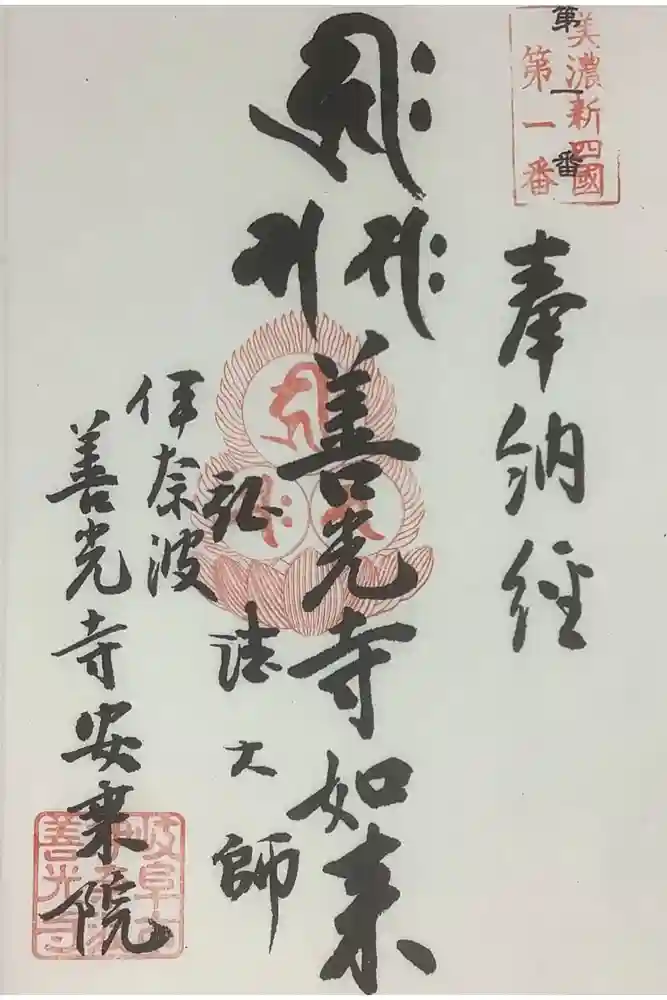 美濃新四國
第一番
第一番
奉納経
善光寺如来
弘法大師
伊奈波
善光寺安乗院
岐阜市
善光寺